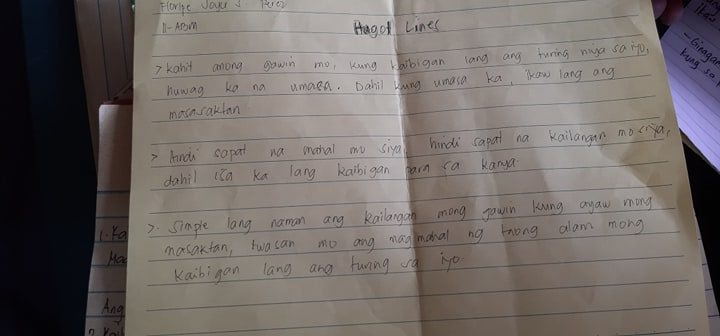 Floripe Joyce S. Perez
11-ABM
Hugot Lines
> Kahit anong gawin mo, kung kaibigan lang ang turing niya sa iyo,
huwag ka na umasa. Dahil kung umasa ka, ikaw lang ang
masasaktan.
> Hindi sapat na mahal mo siya, hindi sapat na kailangan mo siya,
dahil isa ka lang kaibigan para sa kanya.
>. Simple lang naman ang kailangan mong gawin kung ayaw mong
masaktan, iwasan mo ang magmahal ng taong alam mong
kaibigan lang ang turing sa iyo.
1. Ka
Ang
- Ginagan
kung sa